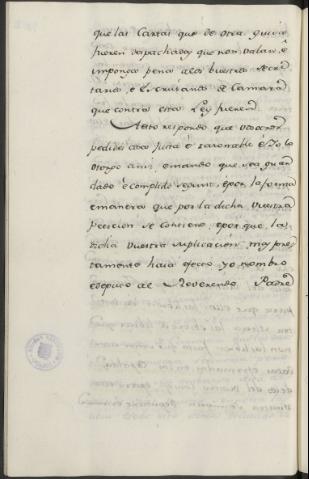 que las Cartas que de otra guisa
fueren despachadas que non valan, é
imponga pena alos vuestros Secre
tarios, é Escrivanos de Camara
que contra esta Ley fueren.
Aesto respondo que vos pedides cosa justa é raconable é Yo lo
otorgo ansi, emando que sea guar
dado é complido segunt, épor la forma
emanera que por la dicha vuestra
peticion se contiene, épor que la
dicha vuestra suplicación muy pres
tamente haia efecto yo nombro
edeputo al Reverendo Padre